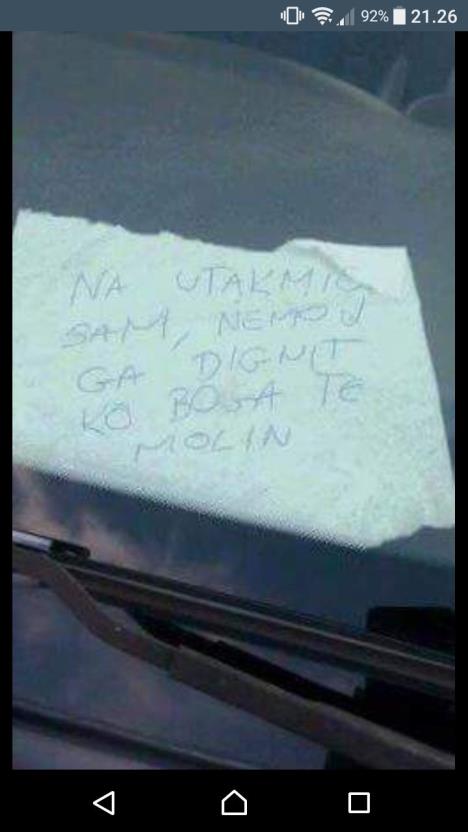 92% 21.26
NA UTAKMIC
SAM, NEMOJ
GA DIGNIT
KO BOGA TE
MOLIN